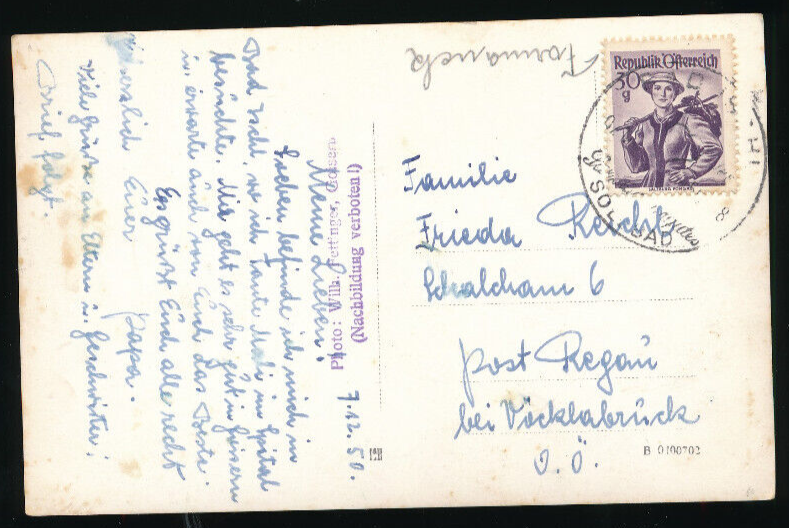 7.12.50.
Meine Lieben!
Soeben befinde ich mich in
Bad Ischl, wo ich Tante Mali im Spital
besuchte. Mir geht es sehr gut in
u. erwarte auch von Euch das Beste.
Es grüßt Euch alle recht
herzlich Euer Papa.
Viele Grüße an Eltern u. Geschwister!
Brief folgt.
Photo: Wilh. Fettinger, Goisern
(Nachbildung verboten!)
Familie
Frieda
Schalcham 6
Post Regau
bei Vöcklabruck
O.Ö.
B 0100702
Republik Österreich
30
g
SOLBAD